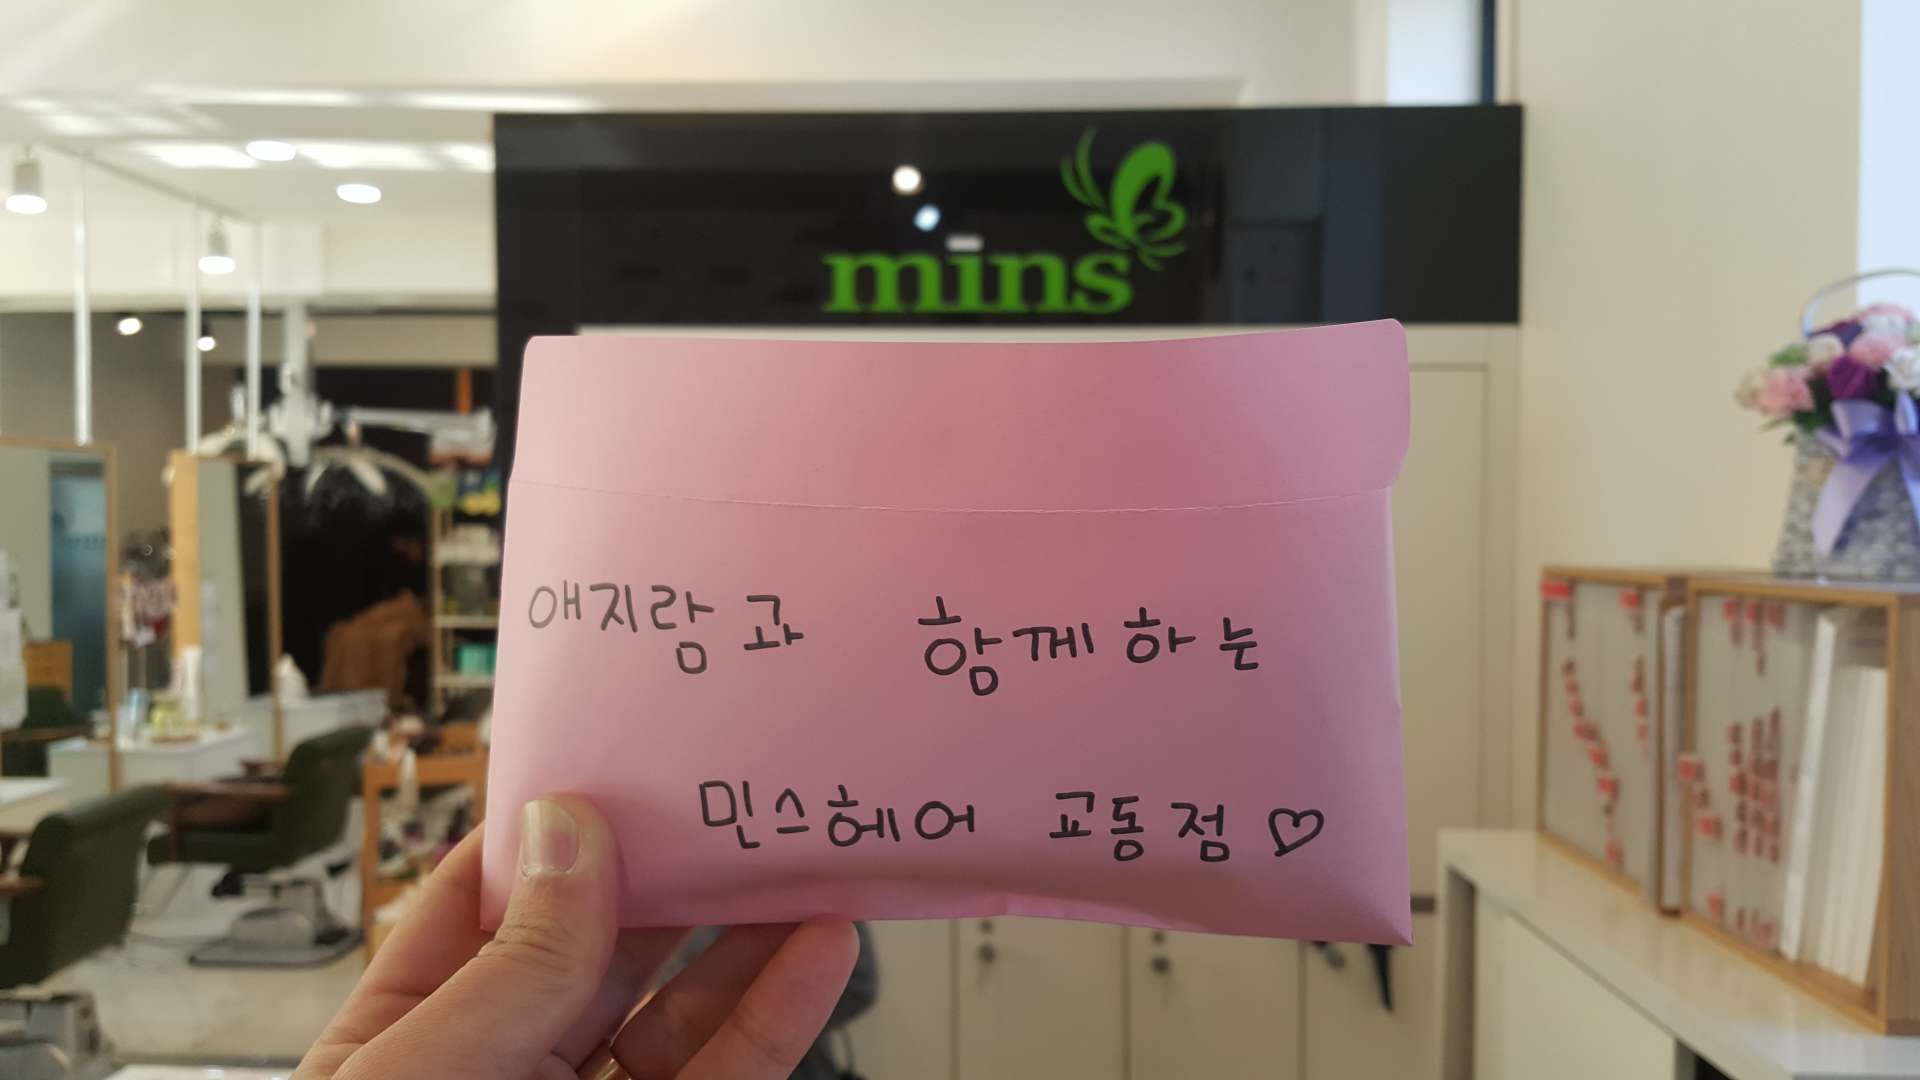 mins
애지람과 함께하는
민스헤어 교동점 ♡